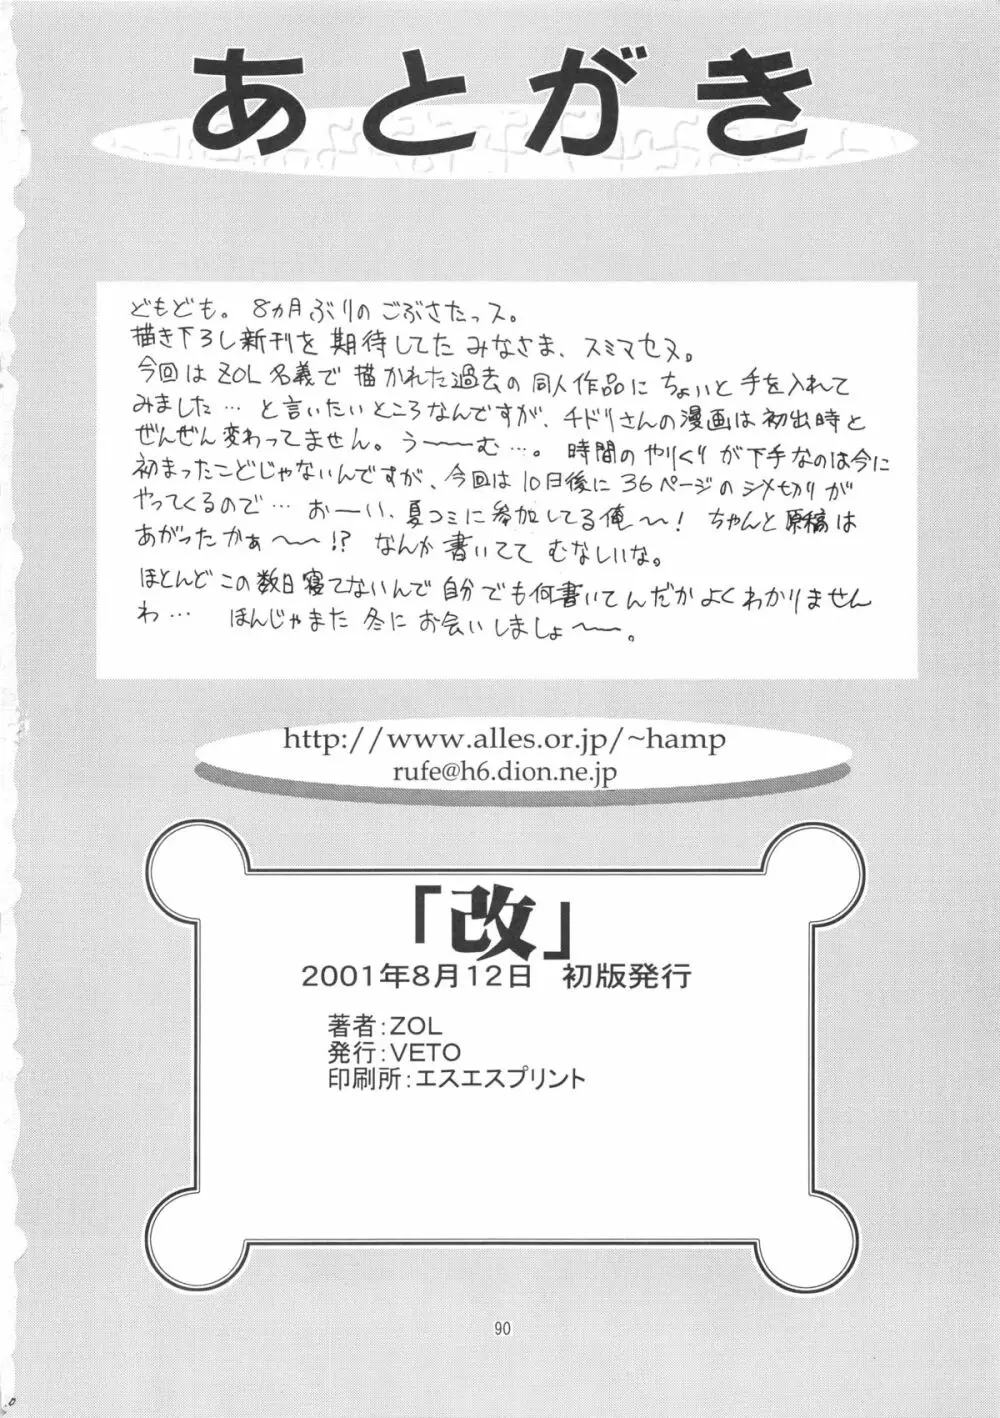 あとがき
どもども。8ヵ月ぶりのごぶさたっス。
描き下ろし新刊を期待してたみなさま、スミマセヌ。
今回はZOL名義で描かれた過去の同人作品にちょいと手を入れて
みました…と言いたいところなんですが、チドリさんの漫画は初出時と
ぜんぜん変わってません。う〜〜む…。時間のやりくりが下手なのは今に
初まったことじゃないんですが、今回は10日後に36ページのシメ切りが
やってくるので…おーい、夏コミに参加してる俺〜!ちゃんと原稿は
あがったかぁ〜〜!?なんか書いててむなしいな。
ほとんどこの数日寝てないんで自分でも何書いてんだかよくわかりません
わ…ほんじゃまた冬にお会いしましょ〜〜。
http://www.alles.or.jp/~hamp
rufe@h6.dion.ne.jp
「改」
2001年8月12日　初版発行
著者:ZOL
発行:VETO
印刷所:エスエスプリント
90